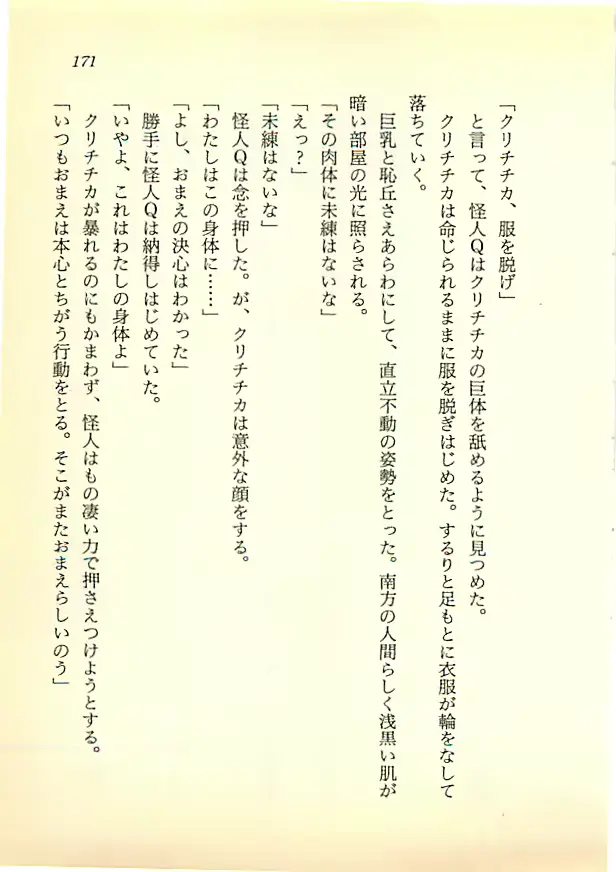 171
「クリチチカ、服を脱げ」
と言って、怪人Qはクリチチカの巨体を舐めるように見つめた。
クリチチカは命じられるままに服を脱ぎはじめた。するりと足もとに衣服が輪をなして
落ちていく。
巨乳と恥丘さえあらわにして、直立不動の姿勢をとった。南方の人間らしく浅黒い肌が
暗い部屋の光に照らされる。
「その肉体に未練はないな」
「えっ?」
「未練はないな」
怪人Qは念を押した。が、クリチチカは意外な顔をする。
「わたしはこの身体に……」
「よし、おまえの決心はわかった」
勝手に怪人Qは納得しはじめていた。
「いやよ、これはわたしの身体よ」
クリチチカが暴れるのにもかまわず、怪人はもの凄い力で押さえつけようとする。
「いつもおまえは本心とちがう行動をとる。そこがまたおまえらしいのう」